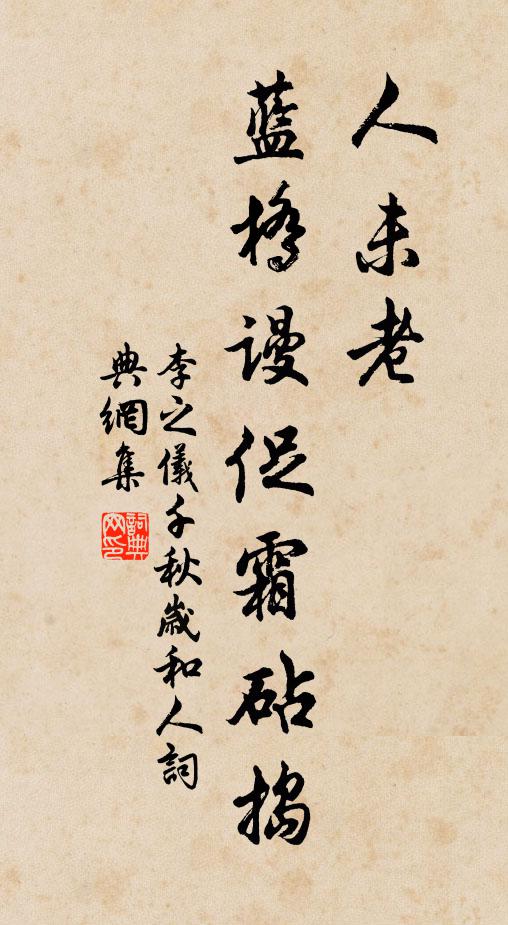 人未老
藍橋谩促霜砧搗
李之儀千秋歲和人詞
典網集
詞典网印